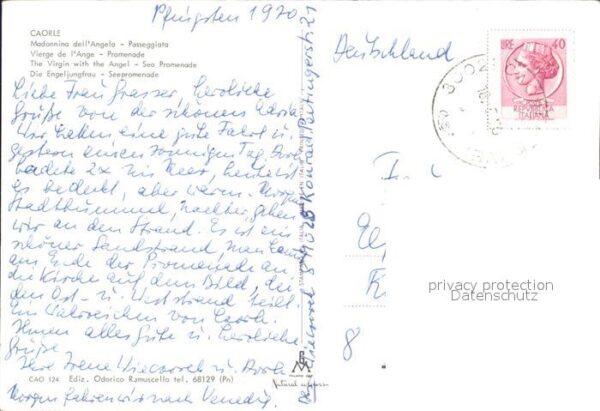 Pfingsten 1970
CAORLE
Madonnina dell'Angelo - Passeggiata
Vierge de l'Ange - Promenade
The Virgin with the Angel - Sea Promenade
Die Engeljungfrau - Seepromenade
Liebe Frau Grasser, herzliche
Grüße von der schönen Adria.
Wir hatten eine gute Fahrt u.
gestern einen sonnigen Tag,
badete 2x im Meer, heute ist
es bedeckt, aber warm. Morgen
Stadtbummel, nachher gehen
wir an den Strand. Es ist ein
schöner Sandstrand, man kann
am Ende der Promenade an
die Kirche auf dem Bild, die
den Ost- u. Weststrand teilt.
Ein Wahrzeichen von Caorle.
Ihnen alles Gute u. herzliche
Grüße
Ihre Irene Wieczorek u.
Morgen fahren wir nach Venedig.
CAO 124 Ediz. Odorico Ramuscello tel. 68129 (Pn)
Wieczorek 89 Konrad Peutingerstr. 21
Deutschland
LIRE 40
REPUBBLICA
ITALIANA
privacy protection
Datenschutz
8